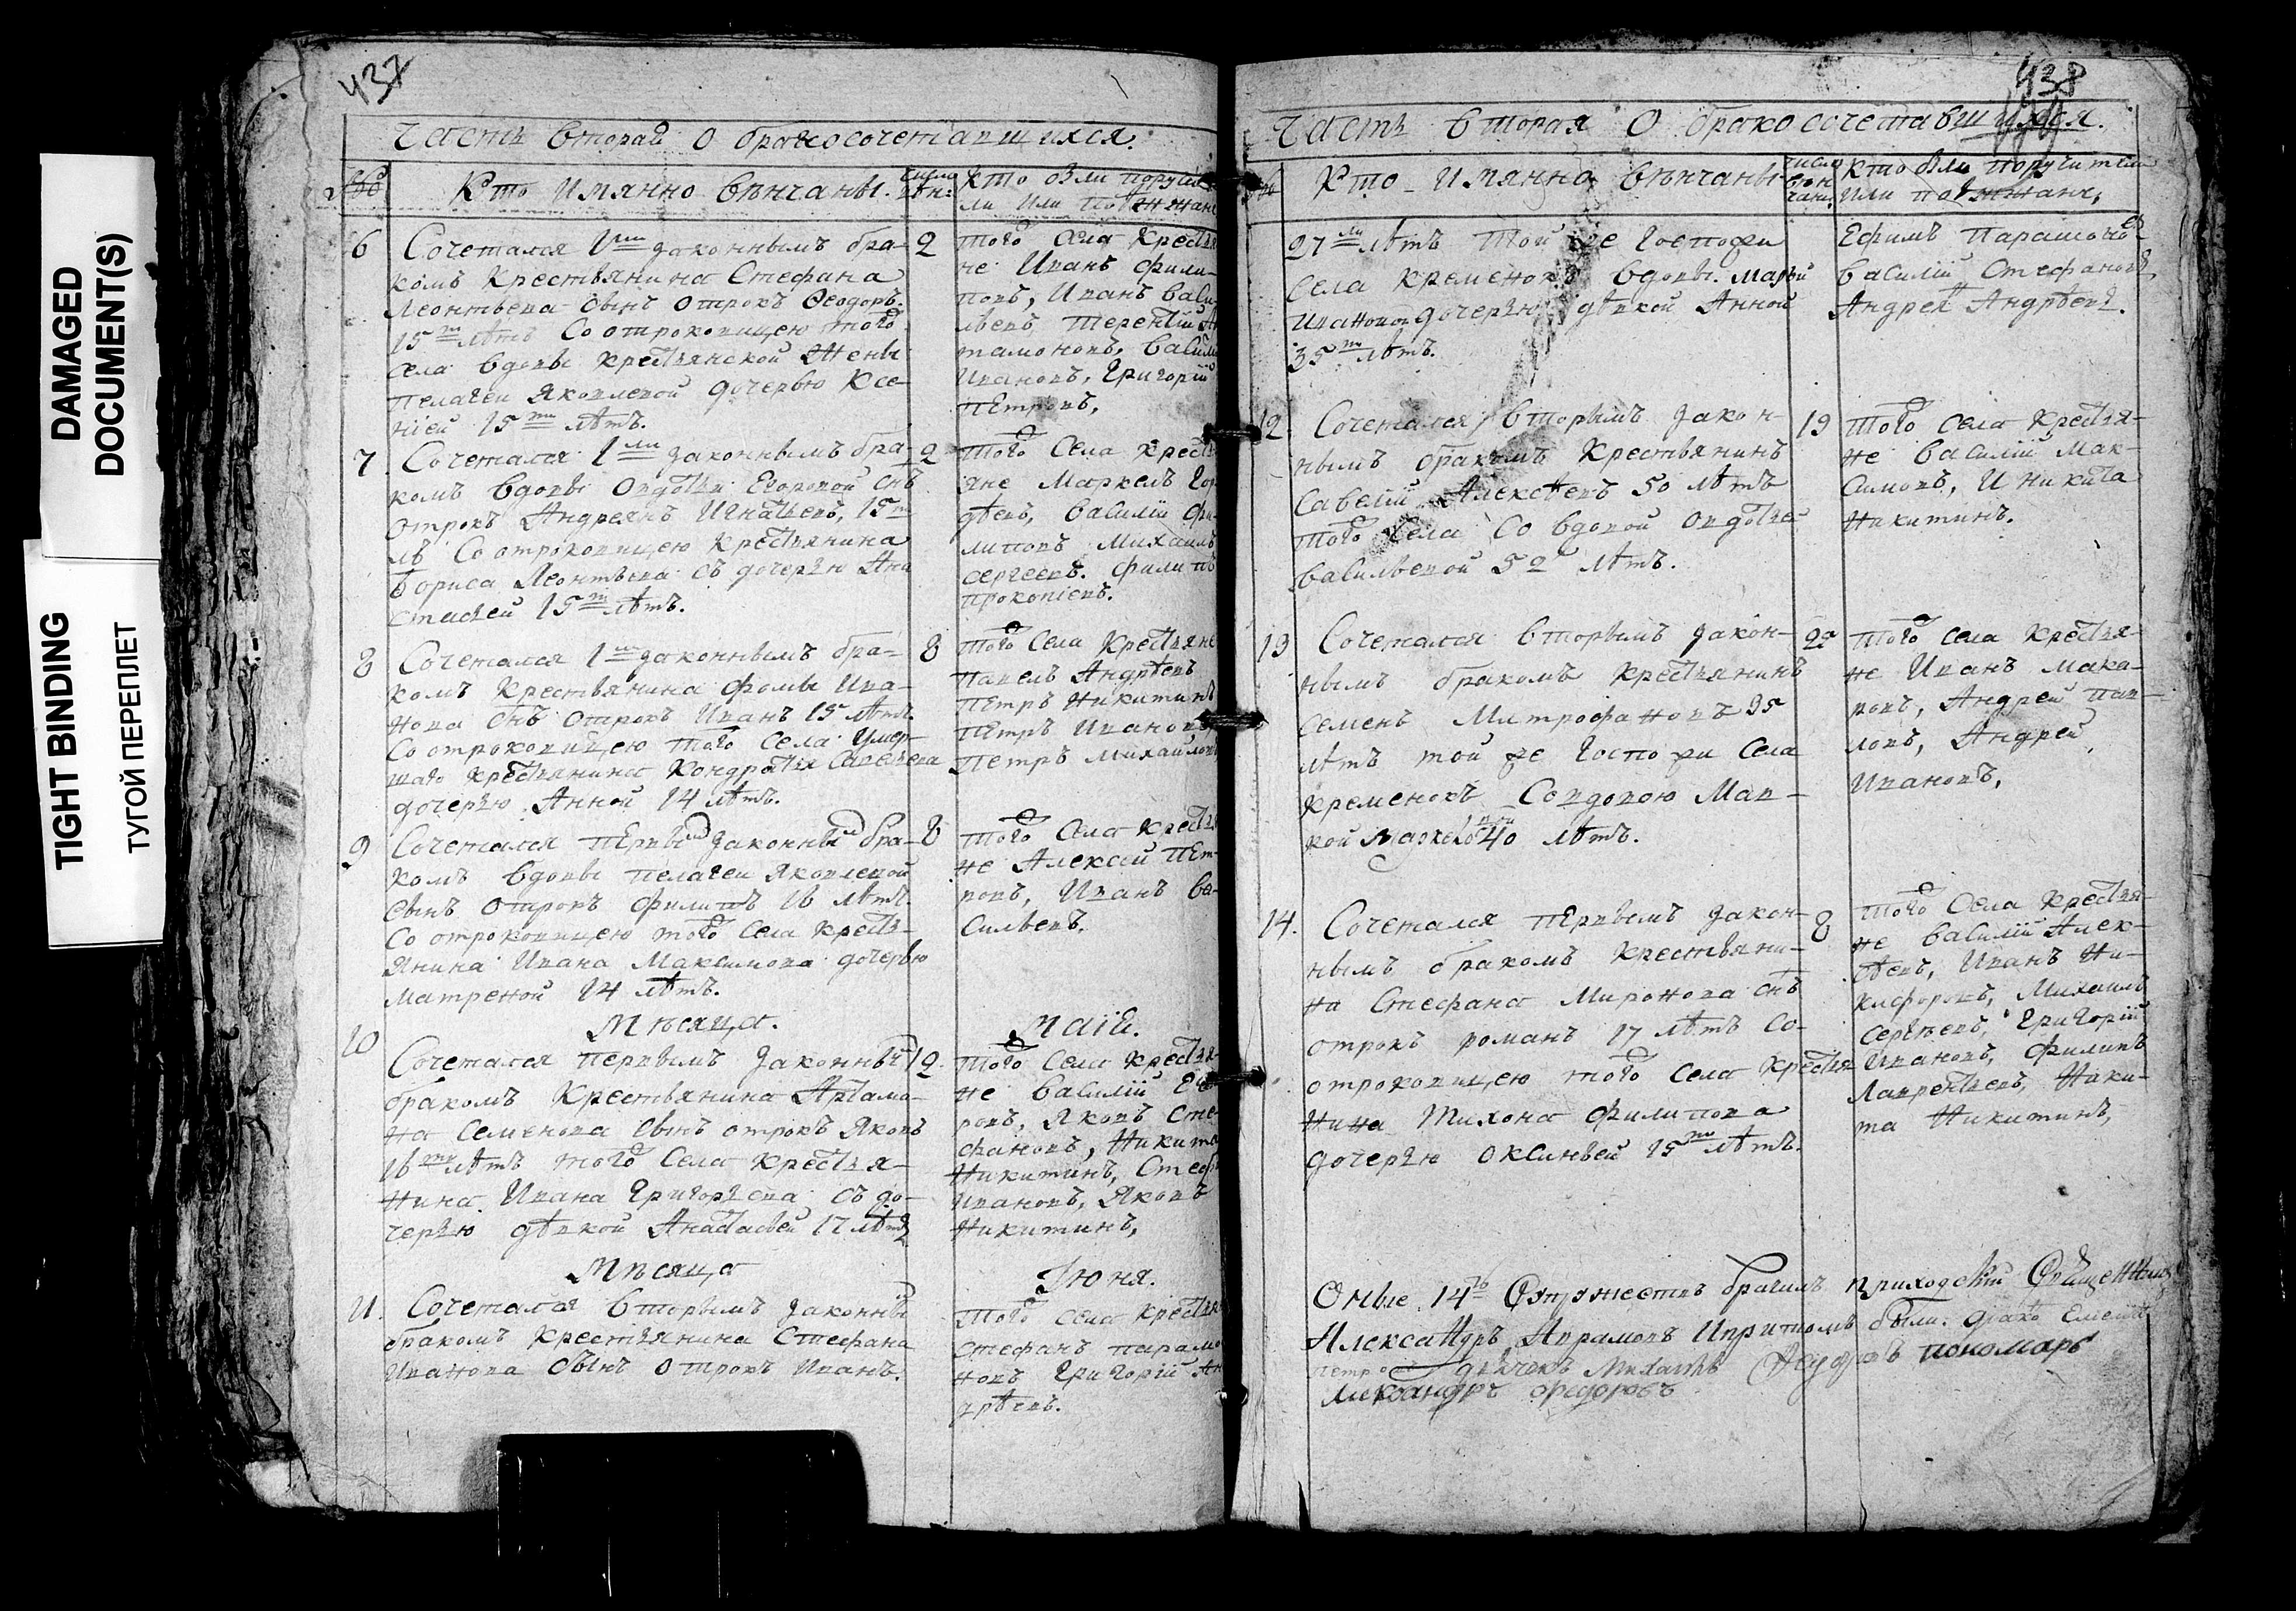 DAMAGED
DOCUMENT(S)
TIGHT BINDING
ТУГОЙ ПЕРЕПЛЕТ
437
Часть вторая О бракосочетавшихся.
№ Кто Имянно вѣнчаны. число вѣн: Кто были поручите
ли или поѣзжане
6 Сочетался 1мъ законнымъ бра- 2
комъ Крестьянина Стефана
Леонтьева сынъ отрокъ Ѳеодоръ.
15ти лѣтъ Со отроковицею того
села вдовы крестьянской жены
Пелагеи Яковлевой дочерью Ксе-
ніей 15ти лѣтъ.
того села Крестья
не Иванъ Фили-
повъ, Иванъ Васи-
льевъ, Терентій Ар
тамоновъ, Василій
Ивановъ, Григорій
Петровъ,
7 Сочетался 1мъ законнымъ бра- 2
комъ вдовы Овдотьи Егоровой снъ
отрокъ Андреянъ Игнатьевъ, 15ти
лѣ Со отроковицею Крестьянина
Бориса Леонтьева съ дочерью Ана
стасіей 15ти лѣтъ.
того Села Кресть
яне Маркелъ Гор
дѣевъ, Василій Фи-
липовъ Михаилъ
Сергеевъ. Филипъ
Прокопіевъ.
8 Сочетался 1мъ законнымъ бра- 8
комъ Крестьянина Фомы Ива-
нова снъ отрокъ Иванъ 15 лѣтъ.
Со отроковицею того села умер-
шаго крестьянина Кондратья Савельева
дочерью Анной 14 лѣтъ.
того села Крестьяне
Павелъ Андрѣевъ
Петръ Никитинъ
Петръ Ивановъ,
Петръ Михайловъ
9 Сочетался первымъ законнымъ бра- 8
комъ вдовы Пелагеи Яковлевой
сынъ отрокъ Филипъ 16 лѣтъ.
Со отроковицею того села кресть-
янина Ивана Максимова дочерью
Матреной 14 лѣтъ.
того села Крестья
не Алексѣй Пет-
ровъ, Иванъ Ва-
сильевъ.
Мѣсяца. Маія.
10 Сочетался первымъ законнымъ 12
бракомъ Крестьянина Артамо-
на Семенова сынъ отрокъ Яковъ
16ти лѣтъ того села крестья-
нина Ивана Григорьева съ до-
черью дѣвкой Анастасьей 17 лѣтъ
того села крестья-
не Василій Его
ровъ, Яковъ Сте-
фановъ, Никита
Никитинъ, Стефа
Ивановъ, Яковъ
Никитинъ,
Мѣсяца Іюня.
11. Сочетался вторымъ законнымъ
бракомъ крестьянина Стефана
Иванова сынъ отрокъ Иванъ.
того села крестья
Стефанъ Парамо
новъ Григорій Ан
дрѣевъ.
438
Часть вторая О бракосочетавшихся.
Кто Имянно вѣнчаны число вѣн чаны Кто были поручители
или поѣзжане,
27ми лѣтъ той же Госпожи
села Кременокъ вдовы Марьи
Ивановой дочерью дѣвкой Анной
35ти лѣтъ.
Ефимъ Парамоновъ
Василій Стефановъ,
Андрей Андрѣевъ.
12 Сочетался вторымъ закон- 19
нымъ бракомъ Крестьянинъ
Савелій Алексѣевъ 50 лѣтъ
того села Со вдовой Овдотьей
Васильевой 52 лѣтъ.
того села крестья-
не Василій Мак-
симовъ, И Никита
Никитинъ.
13 Сочетался вторымъ закон-
нымъ бракомъ крестьянинъ
Семенъ Митрофановъ 35
лѣтъ той же Госпожи села
Кременокъ Совдовою Мав-
рой 40 лѣтъ.
того села крестья-
не Иванъ Мака-
ровъ, Андрей Пав-
ловъ, Андрей
Ивановъ,
14. Сочетался первымъ закон- 8
нымъ бракомъ Крестьяни-
на Стефана Миронова снъ
отрокъ Романъ 17 лѣтъ Со-
отроковицею того села Крестья
нина Тихона Филипова
дочерью Оксиньей 15ти лѣтъ.
того села крестья-
не Василій Алек-
ѣевъ, Иванъ Ни-
кифоровъ, Михаилъ
Сергѣевъ, Григорій
Ивановъ, Филипъ
Лаврентьевъ, Ники-
та Никитинъ,
14 Супружествъ приходскій Священникъ
Александръ Аврамовъ Ипритомъ были
дьячекъ пономарь
Александръ Федоровъ